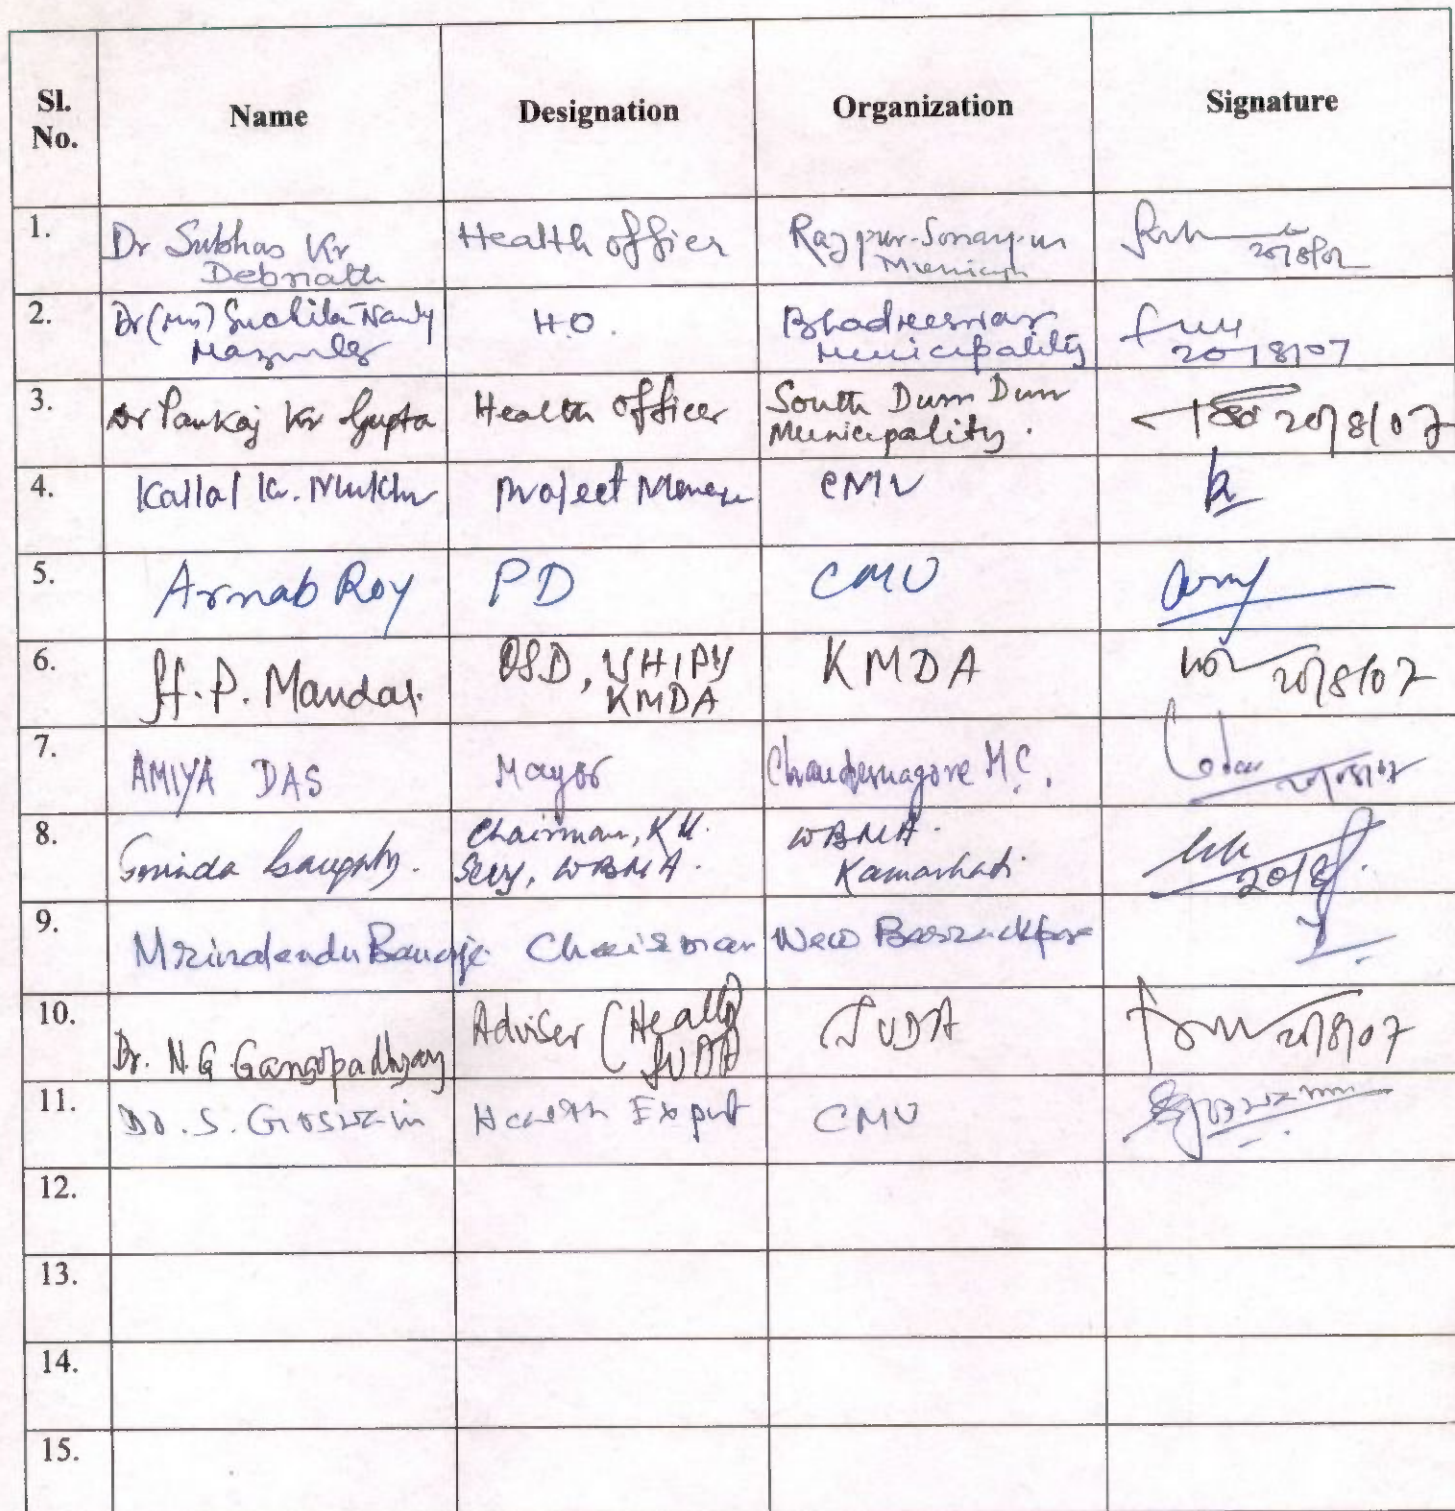 Sl. No. Name Designation Organization Signature
1. Dr Subhas Kr Health officer Rajpur-Sonarpur
Debnath 20/8/07
2. Dr (Mrs) Suchita Nandy H.O. Bhadreeswar
Municipality 20/8/07
3. Dr Pankaj Kr Gupta Health Officer South Dum Dum
Municipality. 20/8/07
4. Kallol Kr. Project CMU
5. Arnab Roy PD CMU
6. P. Mandal. OSD, KMDA
KMDA 20/8/07
7. AMIYA DAS Mayor Chandernagore M.C. 20/08/07
8. Chairman, K.M. WBMA.
Secy, WBMA. Kamarhati 20/8
9. Mrinalendu Banerje Chairman New Barrackpore
10. Dr. N.G. Gangopadhyay Adviser (Health) SUDA
SUDA 20/8/07
11. Dr. S. Goswami Health Expert CMU
12.
13.
14.
15.